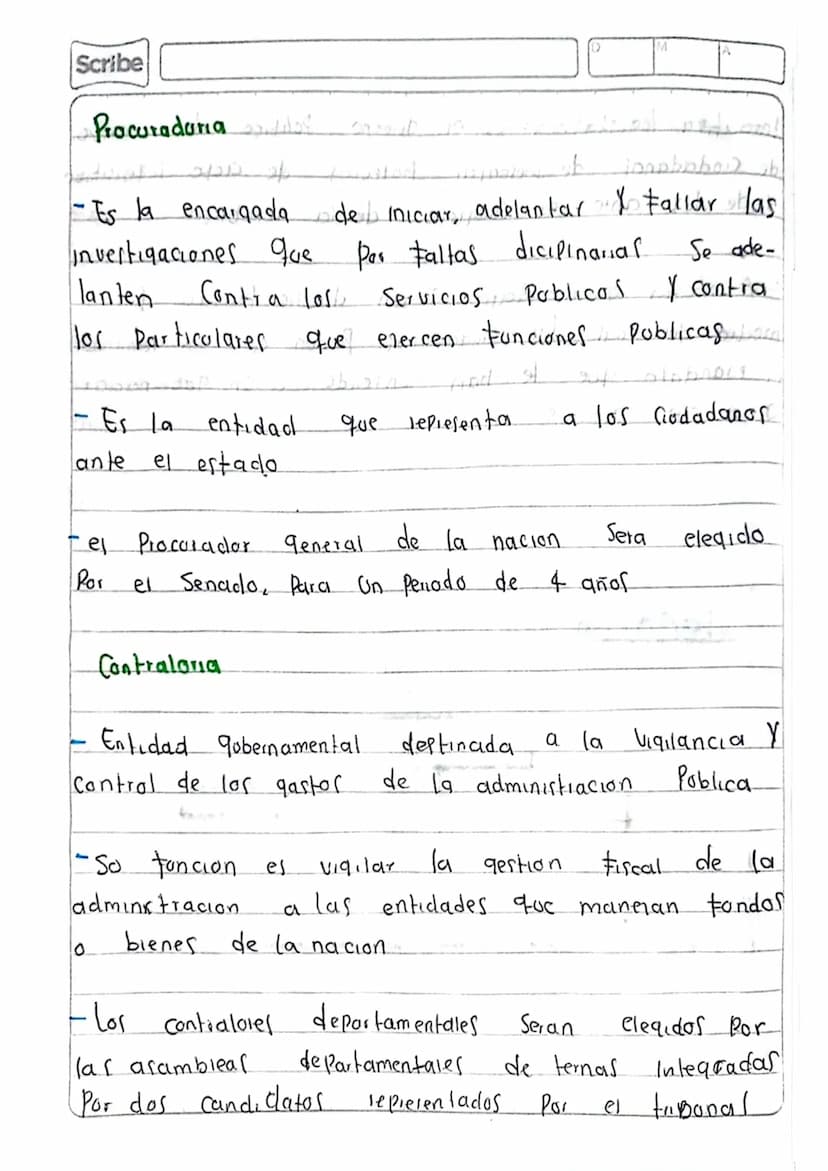 Scribe
D M A
Procuraduria
- Es la encargada de iniciar, adelantar y fallar las
investigaciones que por faltas diciplinarias se ade-
lanten contra los servicios publicos y contra
los particulares que ejercen funciones publicas
- Es la entidad que representa a los ciudadanos
ante el estado
- el Procurador general de la nacion sera elegido
Por el Senado, Para un Periodo de 4 años
Contraloria
- Entidad gubernamental destinada a la vigilancia y
control de los gastos de la administracion Publica
- Su funcion es vigilar la gestion fiscal de la
adminstracion a las entidades que manejan fondos
o bienes de la nacion
- Los contralores departamentales seran elegidos por
las asambleas departamentales de ternas integradas
Por dos candidatos representados por el tribunal